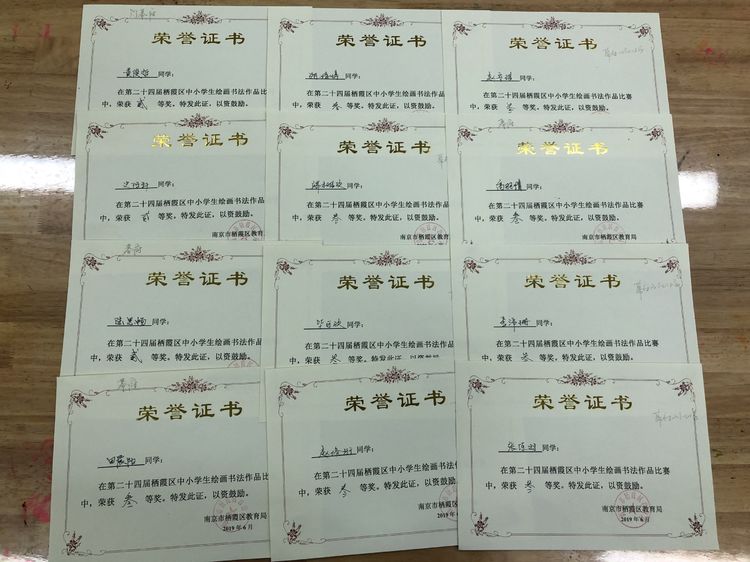 荣誉证书
同学:
在第二十四届栖霞区中小学生绘画书法作品比赛
中,荣获 贰 等奖。特发此证,以资鼓励。
荣誉证书
同学:
在第二十四届栖霞区中小学生绘画书法作品比赛
中,荣获 叁 等奖。特发此证,以资鼓励。
荣誉证书
同学:
在第二十四届栖霞区中小学生绘画书法作品比赛
中,荣获 叁 等奖。特发此证,以资鼓励。
荣誉证书
同学:
在第二十四届栖霞区中小学生绘画书法作品
中,荣获 贰 等奖。特发此证,以资鼓励。
南京市栖霞区教育
荣誉证书
同学:
在第二十四届栖霞区中小学生绘画书法作品
中,荣获 叁 等奖。特发此证,以资鼓励。
南京市栖霞区教育
荣誉证书
同学:
在第二十四届栖霞区中小学生绘画书法作品比赛
中,荣获 叁 等奖。特发此证,以资鼓励。
南京市栖霞区教育局
荣誉证书
同学:
在第二十四届栖霞区中小学生绘画书法作品比赛
中,荣获 贰 等奖。特发此证,以资鼓励。
荣誉证书
同学:
在第二十四届栖霞区中小学生绘画书法作品比赛
中,荣获 叁 等奖。特发此证,以资鼓励。
荣誉证书
同学:
在第二十四届栖霞区中小学生绘画书法作品比赛
中,荣获 叁 等奖。特发此证,以资鼓励。
荣誉证书
同学:
在第二十四届栖霞区中小学生绘画书法作品
中,荣获 叁 等奖。特发此证,以资鼓励。
南京市栖霞区教育局
2019年6月
荣誉证书
同学:
在第二十四届栖霞区中小学生绘画书法作品
中,荣获 叁 等奖。特发此证,以资鼓励。
南京市栖霞区教育
2019年
荣誉证书
同学:
在第二十四届栖霞区中小学生绘画书法作品比赛
中,荣获 叁 等奖。特发此证,以资鼓励。
南京市栖霞区教育局
2019年6月